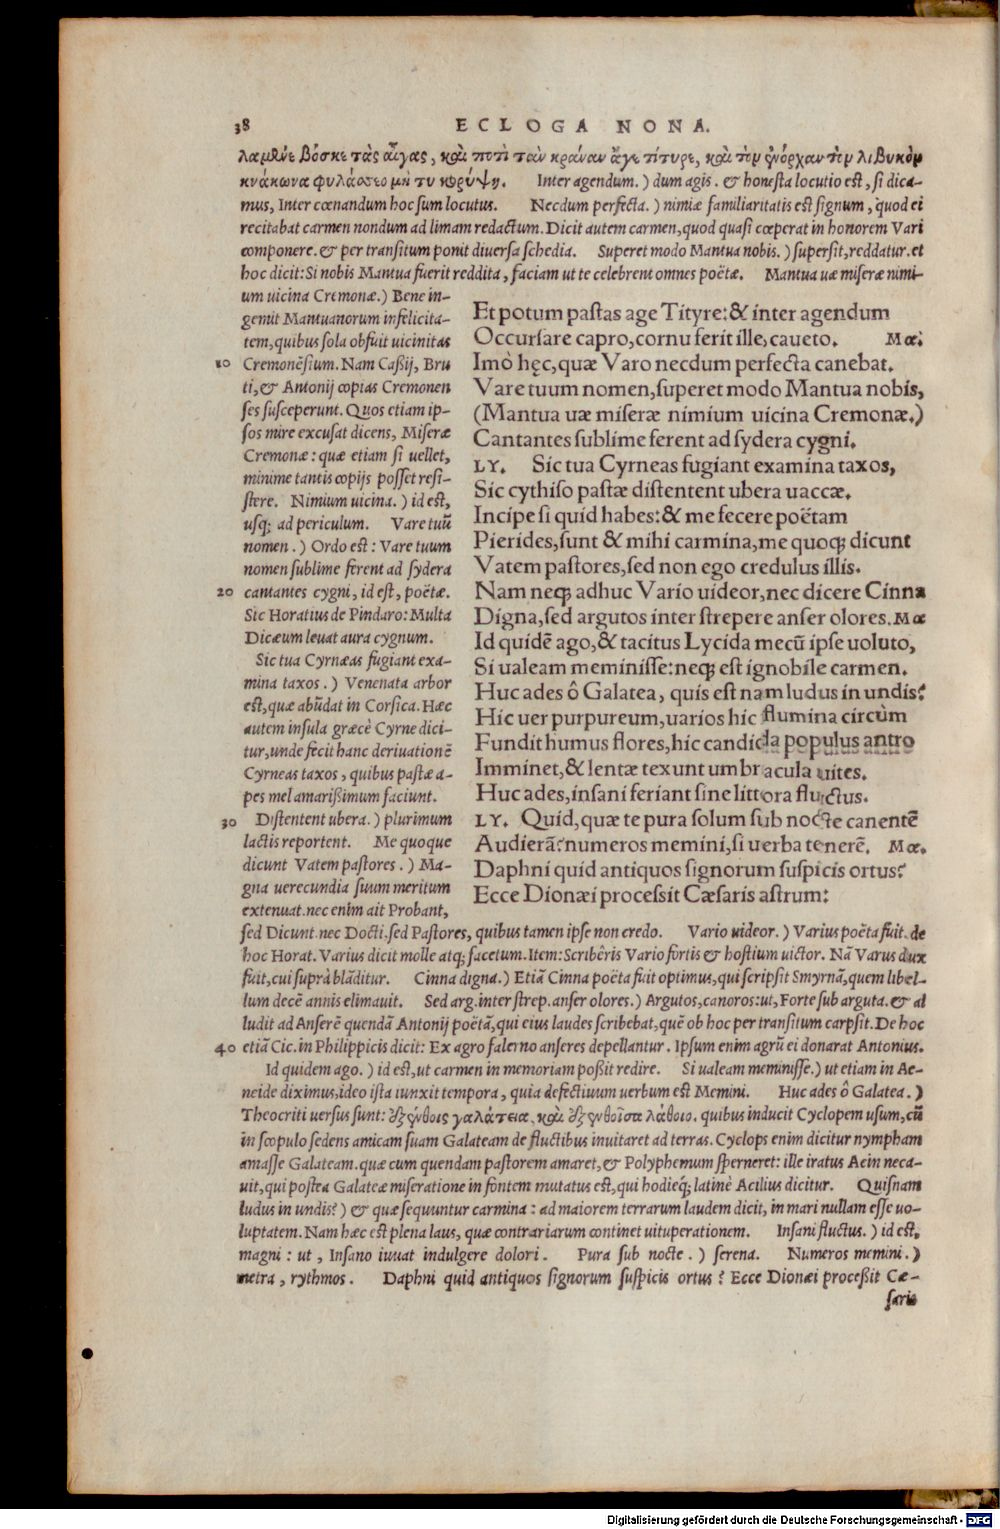 38 ECLOGA NONA.
λαμῶνε βόσκε τὰς αἶγας, καὶ ποτὶ τὰν κράναν ἄγε τίτυρε, καὶ τὸν ἐνόρχαν τὸν λιβυκὸν
κνάκωνα φυλάσσεο μή τυ κορύψῃ. Inter agendum.) dum agis. & honesta locutio est, si dica-
mus, Inter cœnandum hoc sum locutus. Necdum perfecta.) nimiæ familiaritatis est signum, quod ei
recitabat carmen nondum ad limam redactum. Dicit autem carmen, quod quasi cœperat in honorem Vari
componere. & per transitum ponit diuersa schedia. Superet modo Mantua nobis.) supersit, reddatur. et
hoc dicit: Si nobis Mantua fuerit reddita, faciam ut te celebrent omnes poëtæ. Mantua uæ miseræ nimi-
um uicina Cremonæ.) Bene in-
gemit Mantuanorum infelicita-
tem, quibus sola obfuit uicinitas
10 Cremonēsium. Nam Caßij, Bru
ti, & Antonij copias Cremonen
ses susceperunt. Quos etiam ip-
sos mire excusat dicens, Miseræ
Cremonæ: quæ etiam si uellet,
minime tantis copijs posset resi-
stere. Nimium uicina.) id est,
usq; ad periculum. Vare tuū
nomen.) Ordo est: Vare tuum
nomen sublime ferent ad sydera
20 cantantes cygni, id est, poëtæ.
Sic Horatius de Pindaro: Multa
Dicæum leuat aura cygnum.
Sic tua Cyrnæas fugiant exa-
mina taxos.) Venenata arbor
est, quæ abūdat in Corsica. Hæc
autem insula græcè Cyrne dici-
tur, unde fecit hanc deriuationē
Cyrneas taxos, quibus pastæ a-
pes mel amarißimum faciunt.
30 Distentent ubera.) plurimum
lactis reportent. Me quoque
dicunt Vatem pastores.) Ma-
gna uerecundia suum meritum
extenuat. nec enim ait Probant,
Et potum pastas age Tityre: & inter agendum
Occursare capro, cornu ferit ille, caueto. Mœ:
Imò hęc, quæ Varo necdum perfecta canebat.
Vare tuum nomen, superet modo Mantua nobis,
(Mantua uæ miseræ nimium uicina Cremonæ.)
Cantantes sublime ferent ad sydera cygni.
LY. Sic tua Cyrneas fugiant examina taxos,
Sic cythiso pastæ distentent ubera uaccæ.
Incipe si quid habes: & me fecere poëtam
Pierides, sunt & mihi carmina, me quoq; dicunt
Vatem pastores, sed non ego credulus illis.
Nam neq; adhuc Vario uideor, nec dicere Cinna
Digna, sed argutos inter strepere anser olores. Mœ
Id quidē ago, & tacitus Lycida mecū ipse uoluto,
Si ualeam meminisse: neq; est ignobile carmen.
Huc ades ô Galatea, quis est nam ludus in undis?
Hic uer purpureum, uarios hic flumina circùm
Fundit humus flores, hic candida populus antro
Imminet, & lentæ texunt umbracula uites.
Huc ades, insani feriant sine littora fluctus.
LY. Quid, quæ te pura solum sub nocte canentē
Audierā? numeros memini, si uerba tenerē. Mœ.
Daphni quid antiquos signorum suspicis ortus?
Ecce Dionæi processit Cæsaris astrum:
sed Dicunt. nec Docti. sed Pastores, quibus tamen ipse non credo. Vario uideor.) Varius poëta fuit. de
hoc Horat. Varius dicit molle atq; facetum. Item: Scribêris Vario fortis & hostium uictor. Nā Varus dux
fuit, cui suprà blāditur. Cinna digna.) Etiā Cinna poëta fuit optimus, qui scripsit Smyrnā, quem libel-
lum decē annis elimauit. Sed arg. inter strep. anser olores.) Argutos, canoros: ut, Forte sub arguta. & al
ludit ad Anserē quendā Antonij poëtā, qui eius laudes scribebat, quē ob hoc per transitum carpsit. De hoc
40 etiā Cic. in Philippicis dicit: Ex agro falerno anseres depellantur. Ipsum enim agrū ei donarat Antonius.
Id quidem ago.) id est, ut carmen in memoriam poßit redire. Si ualeam meminisse.) ut etiam in Ae-
neide diximus, ideo ista iunxit tempora, quia defectiuum uerbum est Memini. Huc ades ô Galatea.)
Theocriti uersus sunt: ἐξένθοις γαλάτεια, καὶ ἐξενθοῖσα λάθοιο. quibus inducit Cyclopem usum, cū
in scopulo sedens amicam suam Galateam de fluctibus inuitaret ad terras. Cyclops enim dicitur nympham
amasse Galateam. quæ cum quendam pastorem amaret, & Polyphemum sperneret: ille iratus Acin neca-
uit, qui postea Galateæ miseratione in fontem mutatus est, qui hodieq; latinè Acilius dicitur. Quisnam
ludus in undis?) & quæ sequuntur carmina: ad maiorem terrarum laudem dicit, in mari nullam esse uo-
luptatem. Nam hæc est plena laus, quæ contrariarum continet uituperationem. Insani fluctus.) id est,
magni: ut, Insano iuuat indulgere dolori. Pura sub nocte.) serena. Numeros memini.)
metra, rythmos. Daphni quid antiquos signorum suspicis ortus? Ecce Dionæi proceßit Cæ-
saris
Digitalisierung gefördert durch die Deutsche Forschungsgemeinschaft - DFG